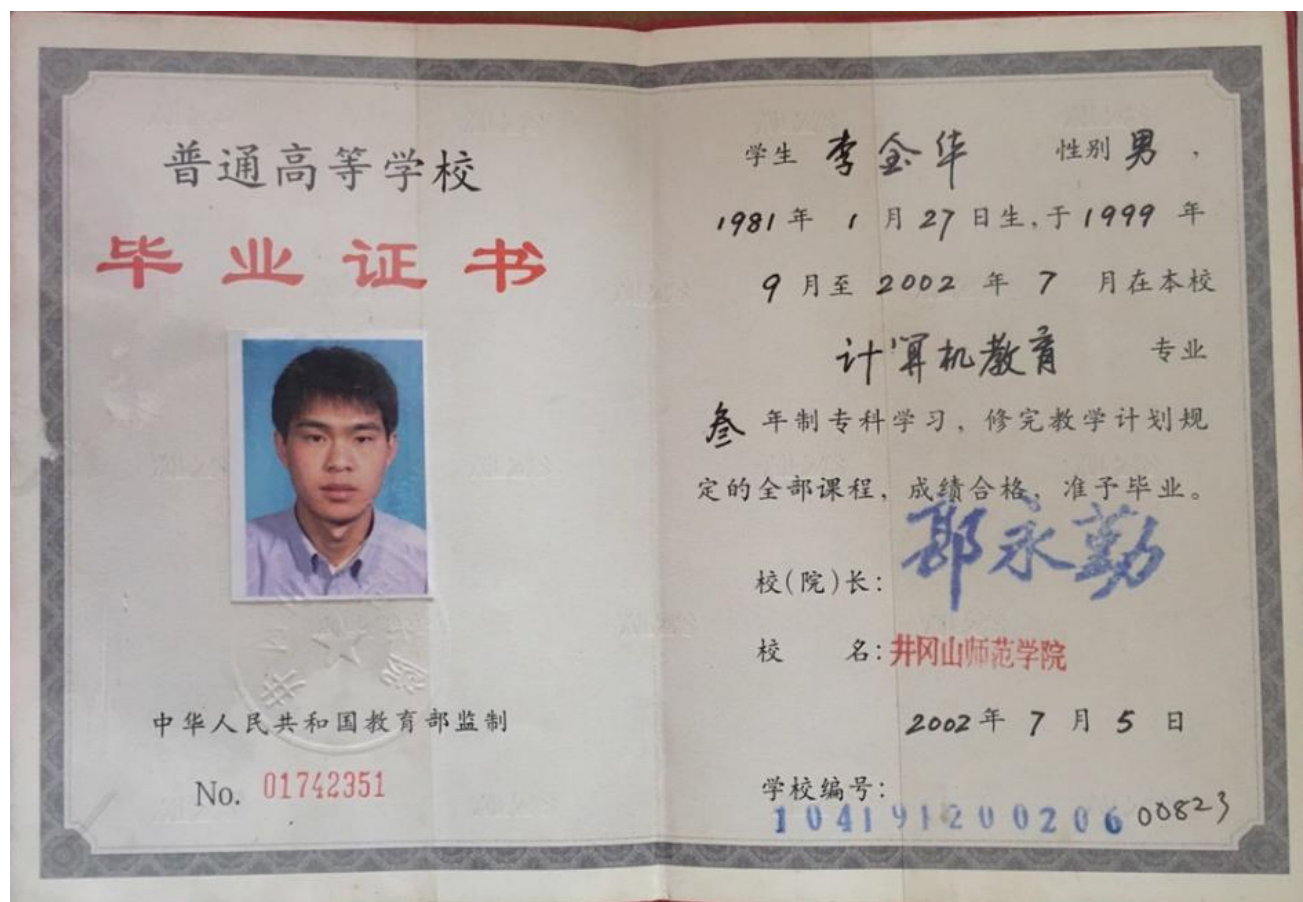 普通高等学校
毕业证书
中华人民共和国教育部监制
No. 01742351
学生 李金华 性别 男，
1981年 1 月 27 日生，于 1999 年
9 月至 2002 年 7 月在本校
计算机教育 专业
叁 年制专科学习，修完教学计划规
定的全部课程，成绩合格，准予毕业。
校(院)长：郭永勤
校 名：井冈山师范学院
2002年 7 月 5 日
学校编号：
10419120020600823